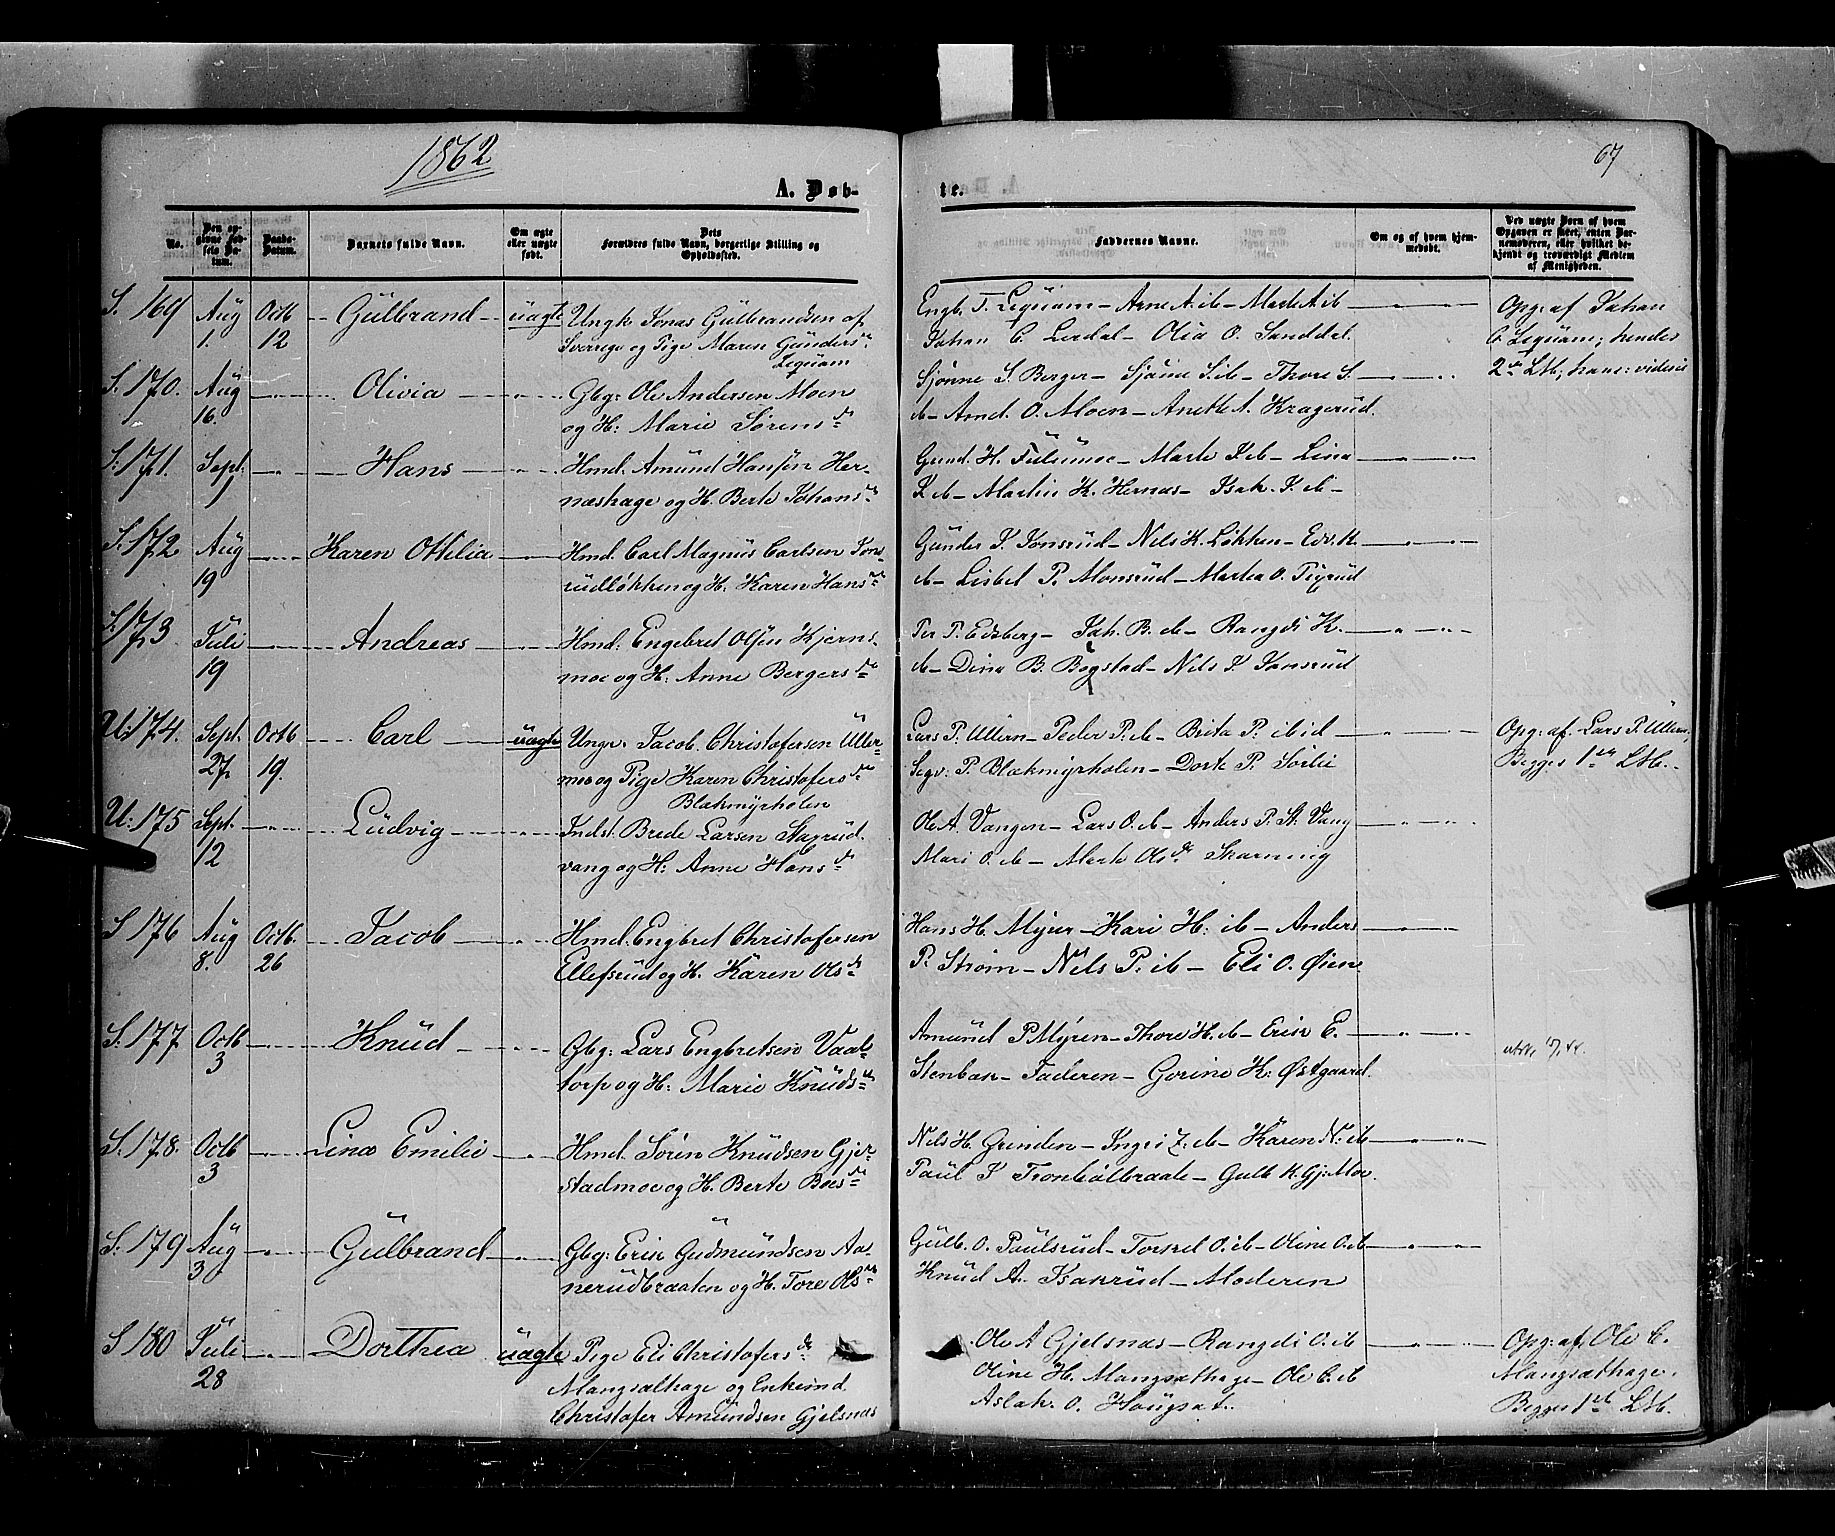 1862
67
A. Døb-
te.
No.
Den opgivne Fødsels Datum.
Daabs-Datum.
Barnets fulde Navn.
Om ægte eller uægte født.
Dets Forældres fulde Navn, borgerlige Stilling og Opholdssted.
Faddernes Navne.
Om og af hvem hjemmedøbt.
Ved uægte Børn af hvem Opgaven er skeet, enten Barnemoderen, eller hvilket bekjendt og troværdigt Medlem af Menigheden.
S. 169 Aug 1. Octb 12 Gulbrand uægte Ungk Jonas Gulbrandsen af
Sverrige og Pige Maren Gunders dr
Engb. T. Arne A. ib - Marte A. ib
Johan C. Lerdal - Olia O. Sanddal
Opg: af Johan
2den Ltb;
S. 170. Aug 16. Olivia Gbg: Ole Andersen Moen
og H: Marie Sørens dr
Sjønne S. Berger - S. ib - Thore S.
ib - Amd. O. Moen - Anette A. Kragerud.
S. 171. Sept. 1 Hans Hmd. Amund Hansen Her-
næshage og H. Berte Johans dr
Gund. H. Marte ib - Lina
ib - Martin K. Hernæs - Isak. ib -
S. 172 Aug 19 Karen Ottilia Hmd. Carl Magnus Carlsen Jons-
rudløkken og H. Karen Hans dr
Gunder J. Jonsrud - Nils K. Løkken - Edv. K
ib - Lisbet P. Monsrud - Martea O. Tigrud
S. 173 Juli 19 Andreas Hmd: Engebret Olsen Kjerns-
moe og H: Anne Bergers dr
Per P. Edsberg - Joh. B. ib - Rangdi K.
ib - Dina B. Bogstad - Nils J. Jonsrud
U. 174. Sept. 27. Octb 19. Carl uægte Ungk. Jacob Christofersen Uller-
moe og Pige Karen Christofers dr
Blakmyrholen
Lars P. Ullern - Peder P. ib - Brita P. ibid
P. Blakmyrholen - Dorte P. Sørlie
Opg: af. Lars P. Ullern,
Begges 1ste Ltb.
U. 175 Sept. 12 Ludvig Indst. Brede Larsen Slagrud
vang og H: Anne Hans dr
Ole A. Vangen - Lars O. ib - Anders P. St. Vang
Mari O. ib - Marte Ols dr Skarning
S 176 Aug 8. Octb. 26 Jacob Hmd. Engbret Christofersen
Ellefsrud og H. Karen Ols dr
Hans H. Myrer - Kari H: ib - Anders
P. Strøm - Nels P. ib - Eli O. Øien
S. 177 Octb 3 Knud Gbg: Lars Engbretsen Vaal-
torp og H: Marie Knuds dr
Amund P. Myren - Thore H. ib - Erik E.
Stenbak - Faderen - Gorine K: Østgaard.
S. 178. Octb 3 Lina Emilie Hmd. Søren Knudsen Gjer-
stadmoe og H. Berte Boes dr
Nils H. Grinden - Ingri ib - Karen N. ib
Paul Gulb K. Gj: Moe.
S. 179 Aug 3 Gulbrand Gbg: Erik Gudmundsen Aa-
nerudbraaten og H. Tore Ols dr
Gulb. O. Paulsrud - Torkel O. ib - Oline O. ib
Knud A. Isakrud - Moderen
S 180 Juli 28 Dorthea uægte Pige Eli Christofers dr
Mangsæthage og Enkemd.
Christofer Amundsen Gjelsnæs
Ole A Gjelsnæs - Rangdi O. ib
Oline H. Mangsæthage - Ole C. ib
Aslak. O. Haugsæt.
Opg: af. Ole C.
Mangsæthage.
Begges 1ste Ltb.